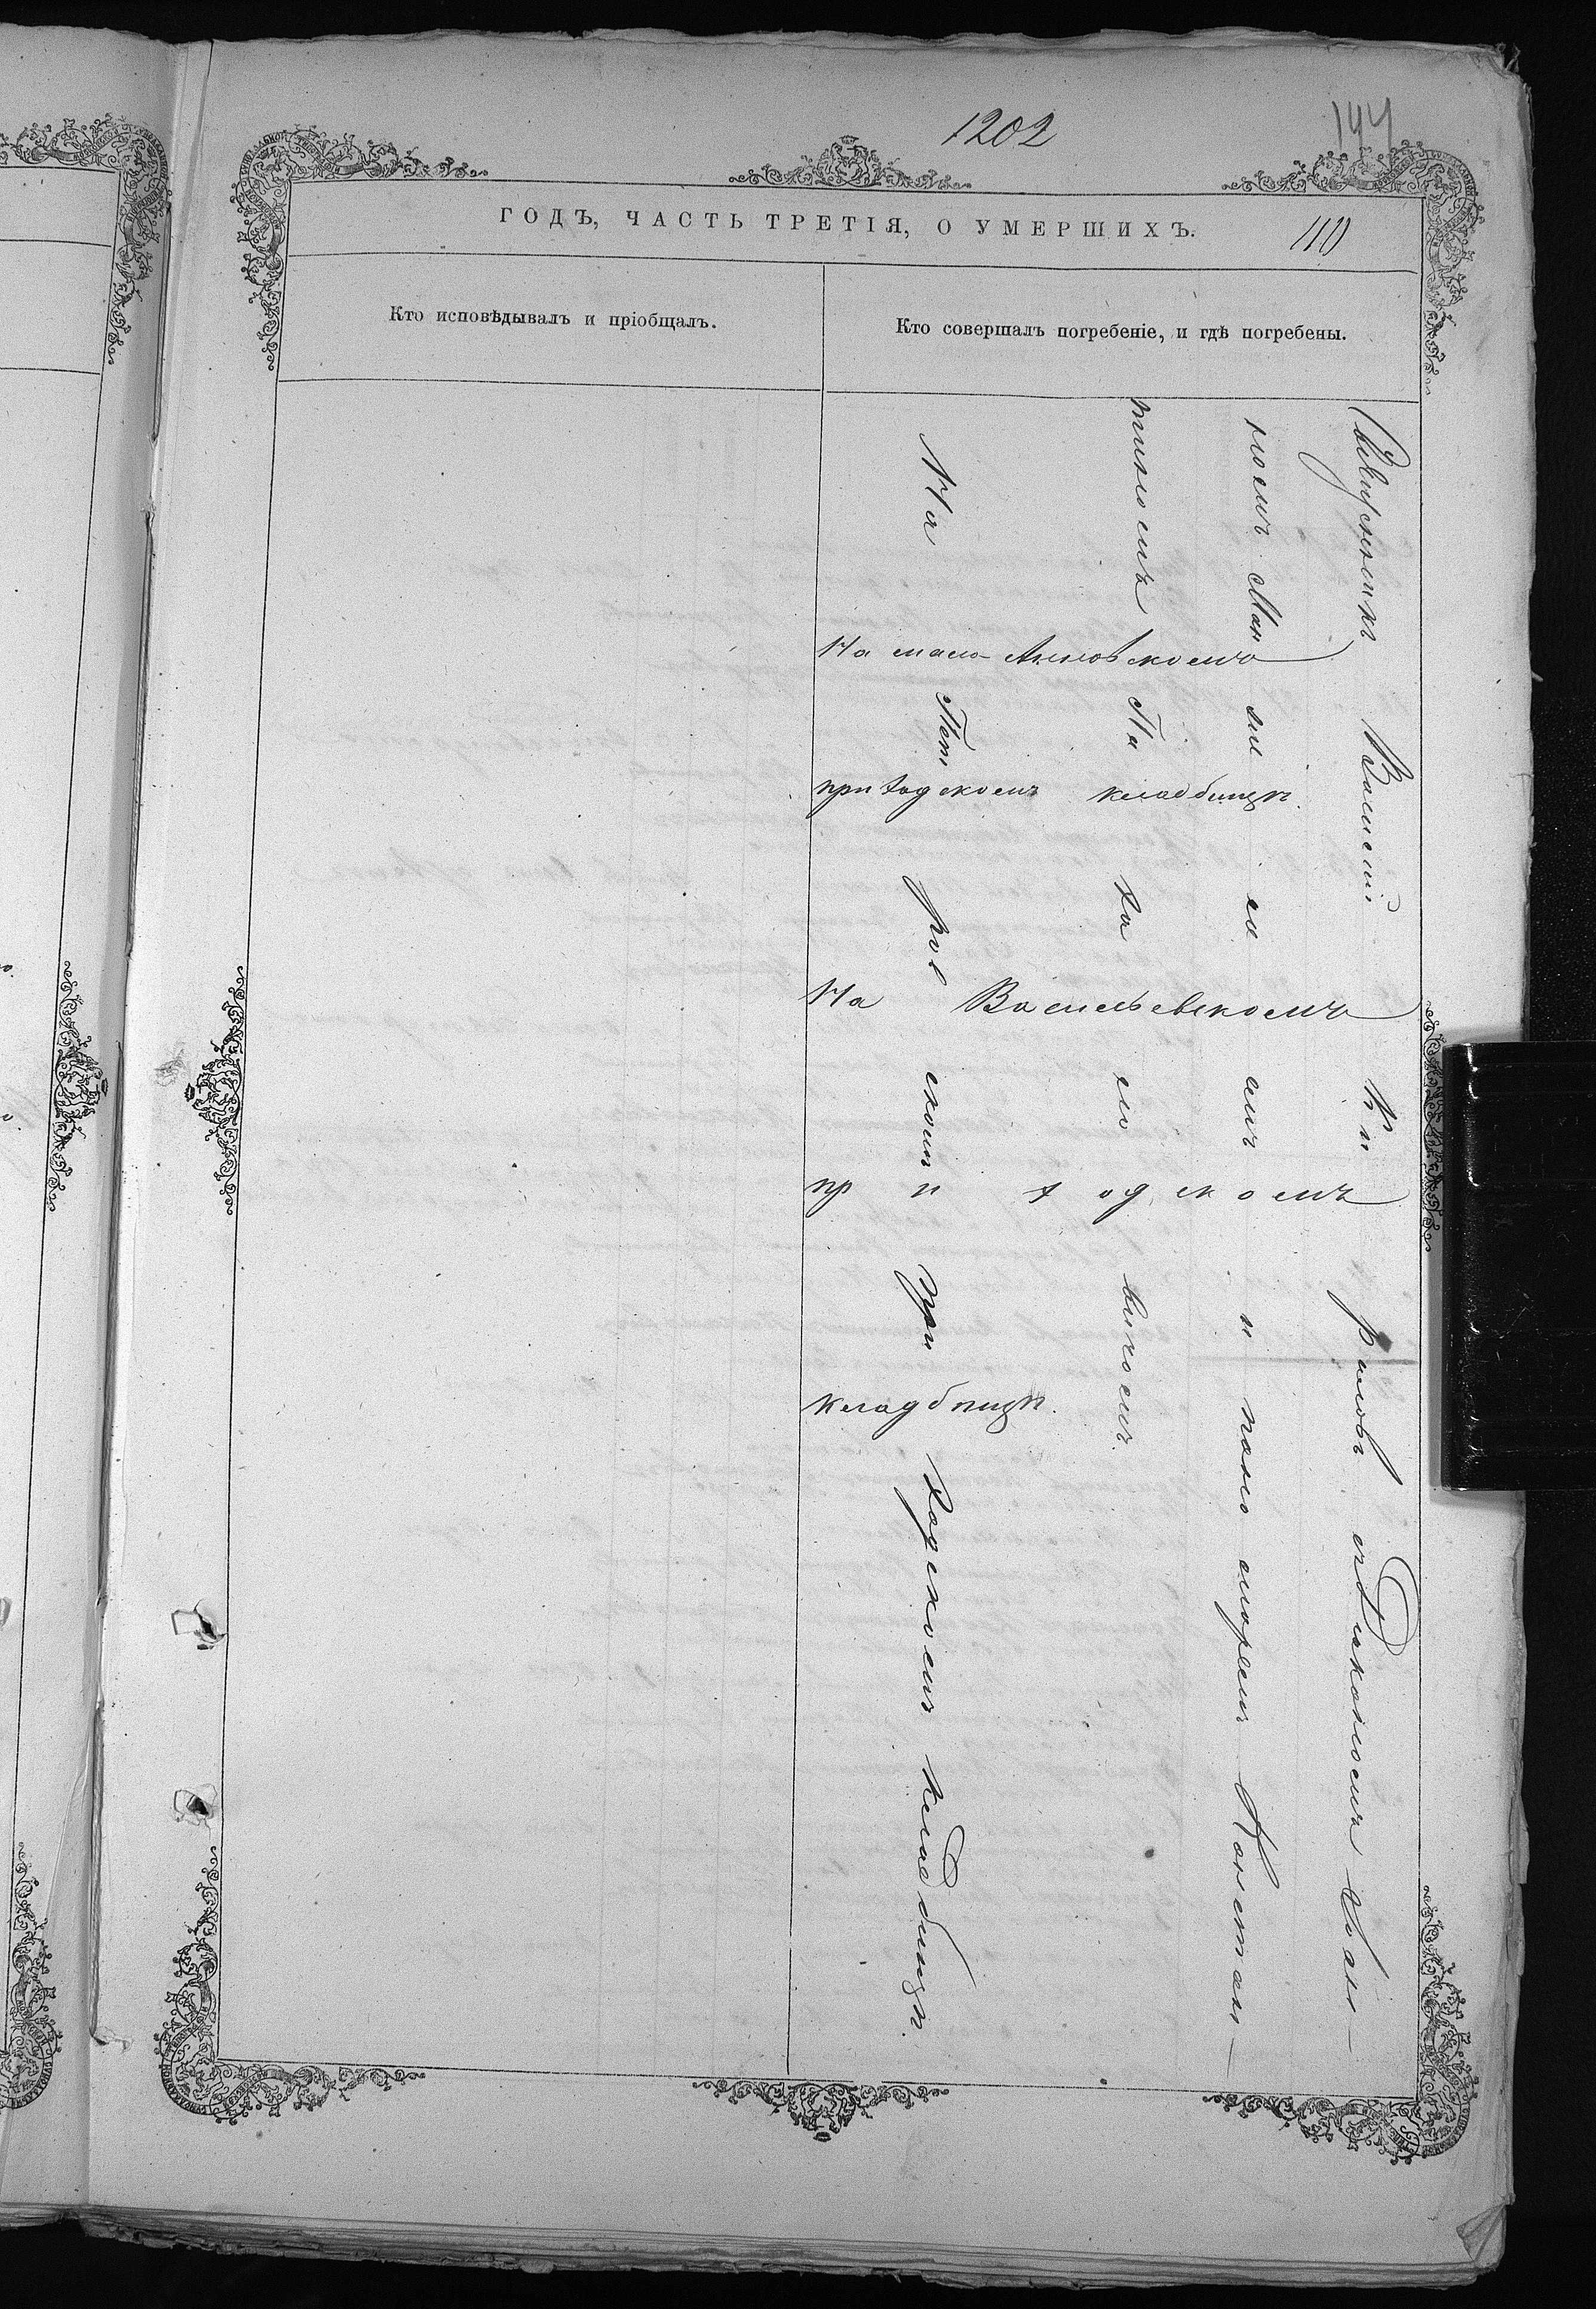 1202
144
ГОДЪ, ЧАСТЬ ТРЕТІЯ, О УМЕРШИХЪ.
110
Кто исповѣдывалъ и пріобщалъ.
Кто совершалъ погребеніе, и гдѣ погребены.
Священникъ Василій Кириловъ съ Діакономъ
и пономаремъ Констан-
тиномъ Па
На Петровскомъ приходскомъ кладбищѣ.
На мало-Анновскомъ
приходскомъ кладбищѣ.
На Васильевскомъ
приходскомъ
кладбищѣ.